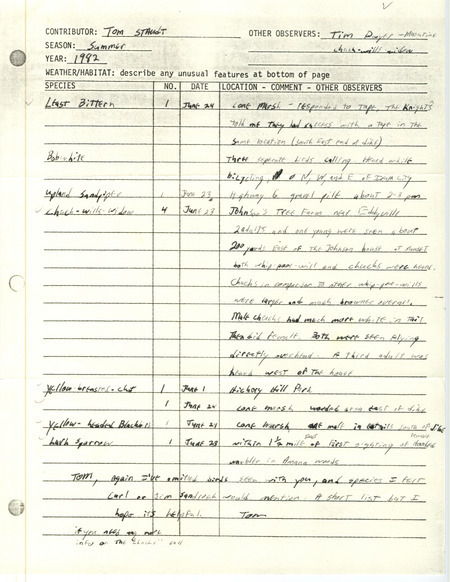 CONTRIBUTOR: Tom Staudt OTHER OBSERVERS: Tim
SEASON: Summer chuck-wills widow
YEAR: 1982
WEATHER/HABITAT: describe any unusual features at bottom of page
SPECIES NO. DATE LOCATION - COMMENT - OTHER OBSERVERS
Least Bittern 1 June 24 Cone Marsh - responded to Tape. The Knights
told me they had success with a Tape in the
same location (South East end of dike)
Bobwhite Three separate birds calling. Heard while
bicycling, N, W, and E of Iowa City
Upland Sandpiper 1 June 23 Highway 6 gravel pits about 2-3 pm
Chuck-wills-widow 4 June 23 Johnson's Tree Farm near Eddyville
2 adults and one young were seen about
200 yards East of the Johnson house at sunset
both whip-poor-will and chucks were heard.
Chucks in comparison to other whip-poor-wills
were larger and much browner overall.
Male chucks had much more white in Tail
Than did female. Both were seen flying
directly overhead. A third adult was
heard west of the house
Yellow-breasted-chat 1 June 1 Hickory Hill Park
1 June 24 Cone marsh wooded area east of dike
Yellow-headed Blackbird 1 June 21 Cone Marsh male in cattails south of dike
Lark Sparrow 1 June 28 within 1 1/2 mile of first sighting of
warbler in Amana woods
Tom, again I've omitted birds seen with you, and species I felt
Carl or Jim would mention. A short list but I
hope it's helpful. Tom
if you need any more
info on the "chucks" call